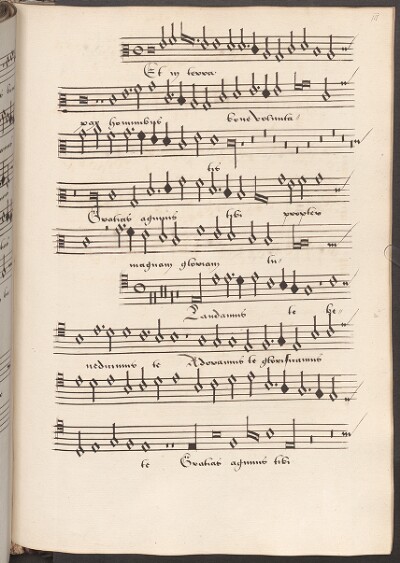 Et in terra
pax hominibus bone volunta
tis
Gratias agimus tibi propter
magnam gloriam tu
Laudamus te be
nedicimus te Adoramus te glorificamus
te Gratias agimus tibi